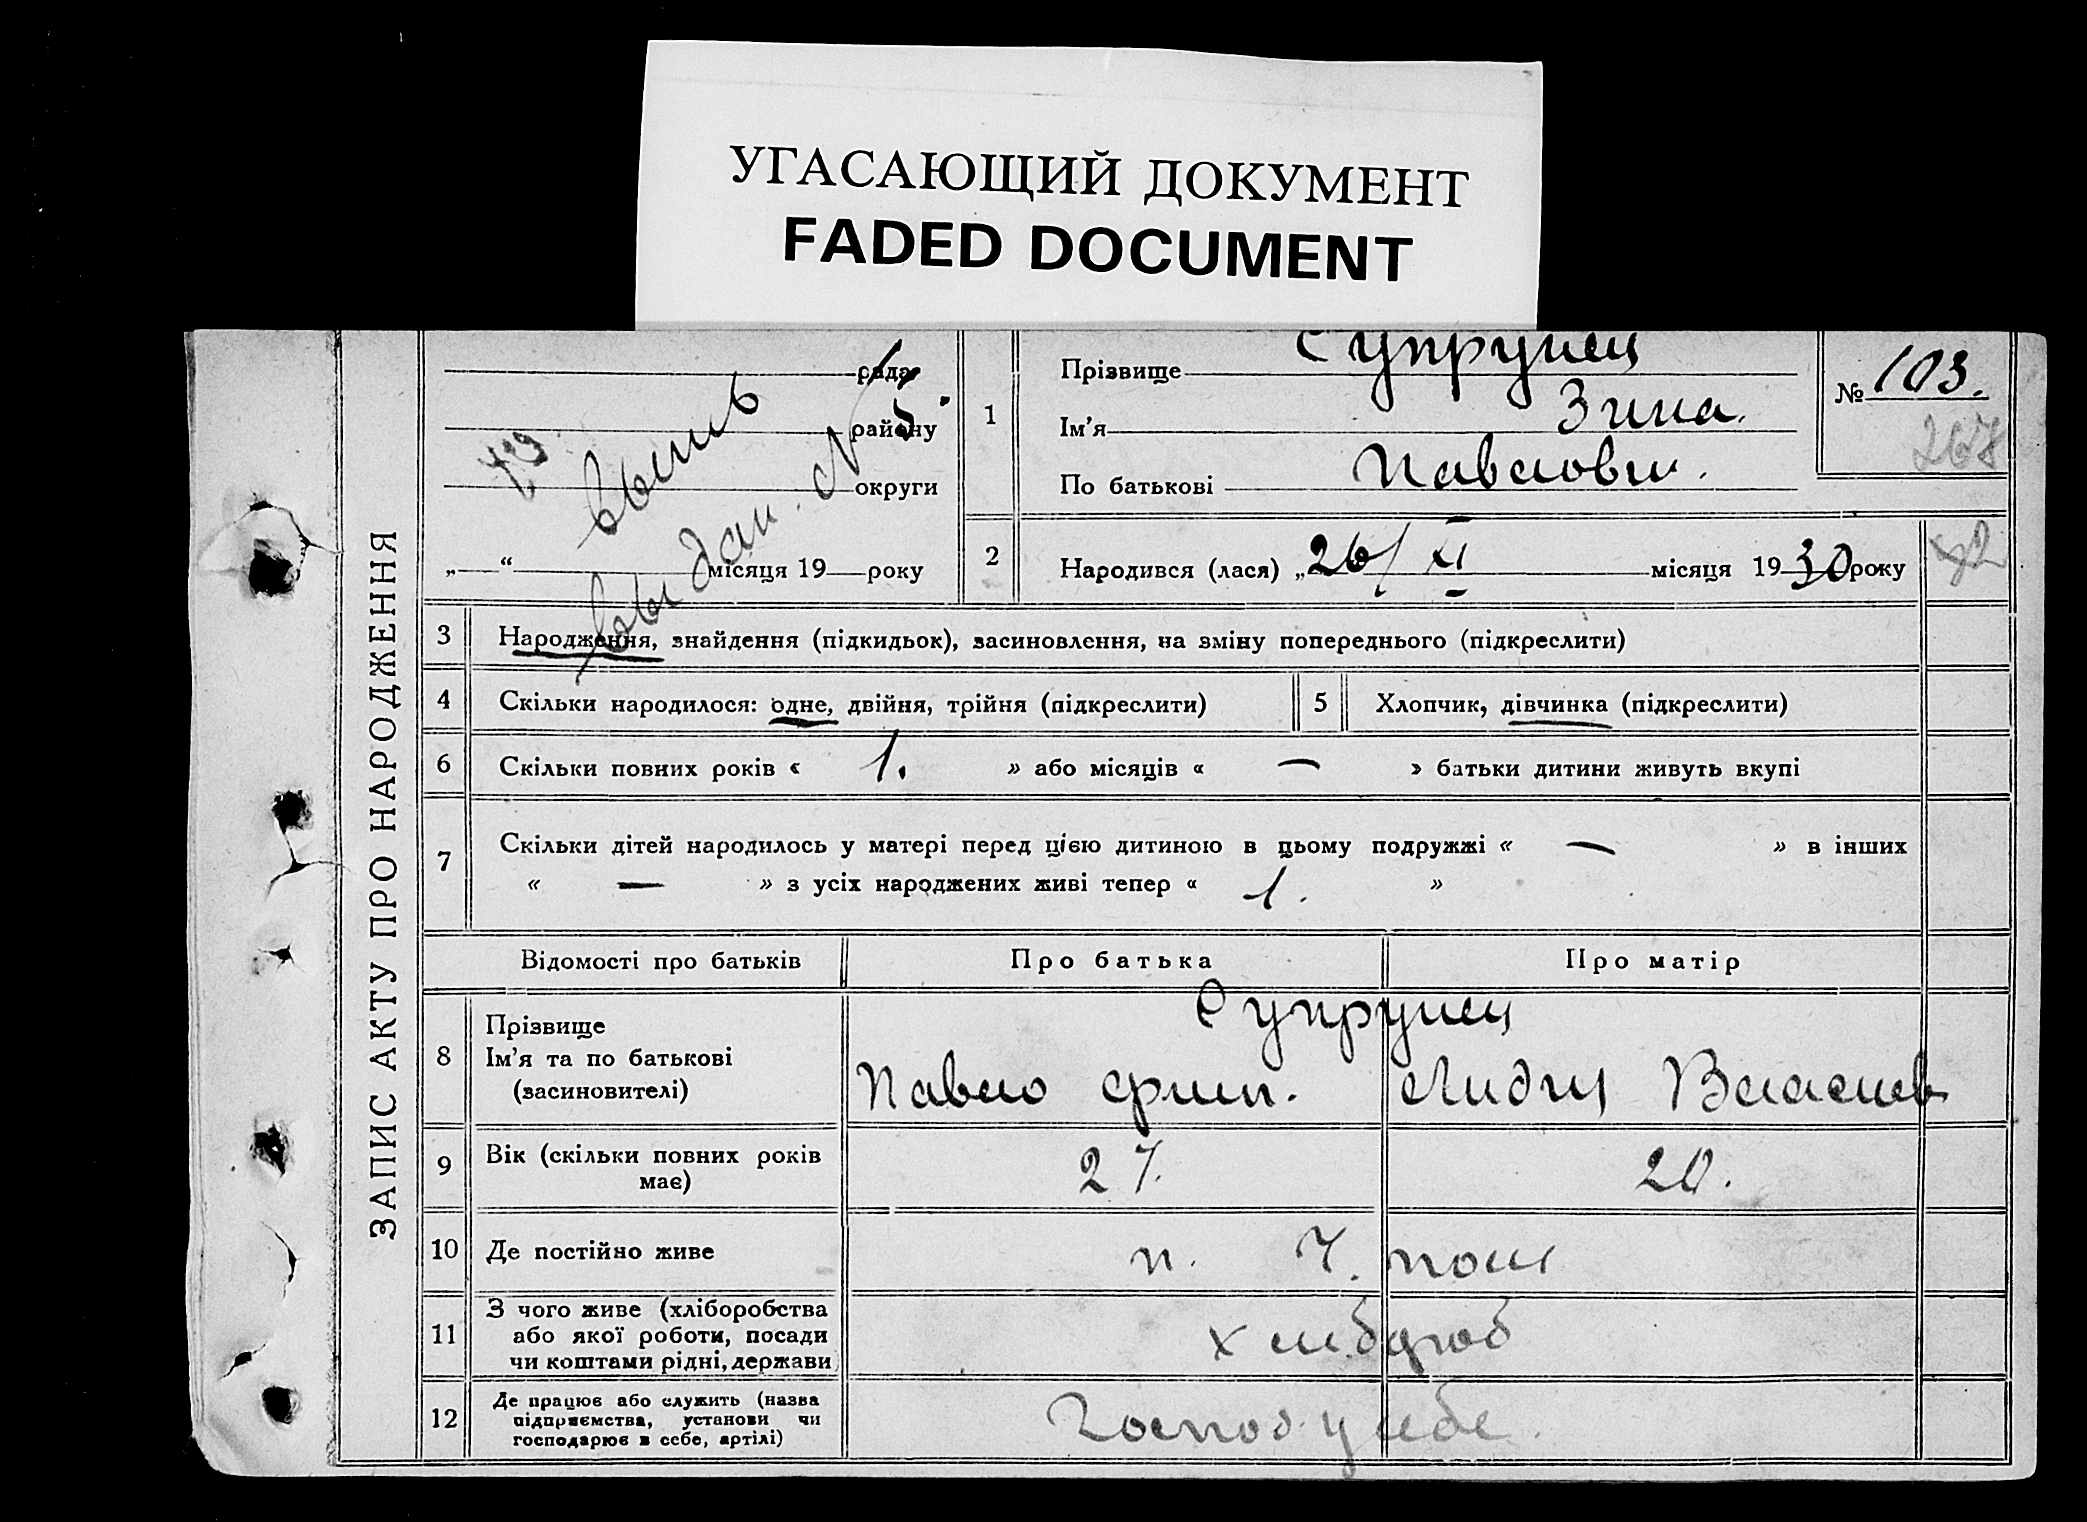 УГАСАЮЩИЙ ДОКУМЕНТ
FADED DOCUMENT
ЗАПИС АКТУ ПРО НАРОДЖЕННЯ
рада
району
округи
„ “ місяця 19 року
выдан. № 5.
1 Прізвище Супрунец
Ім'я Зина.
По батькові Павловн.
№ 103.
267
2 Народився (лася) „26/ XI місяця 1930 року
3 Народження, знайдення (підкидьок), засиновлення, на зміну попереднього (підкреслити)
4 Скільки народилося: одне, двійня, трійня (підкреслити) 5 Хлопчик, дівчинка (підкреслити)
6 Скільки повних років « 1. » або місяців « — » батьки дитини живуть вкупі
7 Скільки дітей народилось у матері перед цією дитиною в цьому подружжі « — » в інших
« — » з усіх народжених живі тепер « 1. »
Відомості про батьків Про батька Про матір
8 Прізвище
Ім'я та по батькові
(засиновителі)
Супрунец
Павло Лидия Власиев
9 Вік (скільки повних років має) 27. 20.
10 Де постійно живе п.
11 З чого живе (хліборобства
або якої роботи, посади
чи коштами рідні, держави)
хлибороб
12 Де працює або служить (назва
підприємства, установи чи
господарює в себе, артілі)
Господ. у себе.